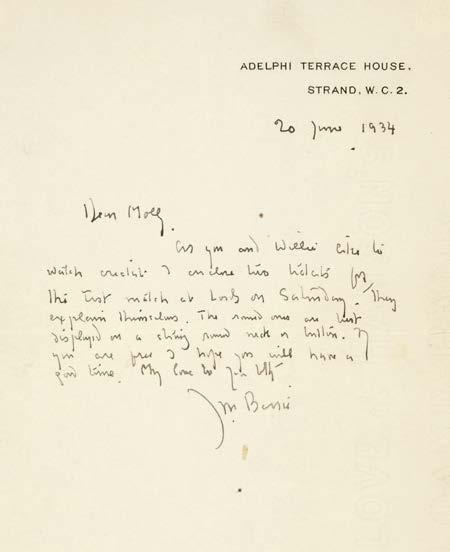 ADELPHI TERRACE HOUSE,
STRAND, W.C.2.
20 June 1934
Dear Molly.
As you and Willie like to
watch cricket I enclose two tickets for
the test match at Lords on Saturday. They
explain themselves. The round ones are best
displayed on a string round neck or button. If
you are free I hope you will have a
good time. My love to you both
J.M. Barrie